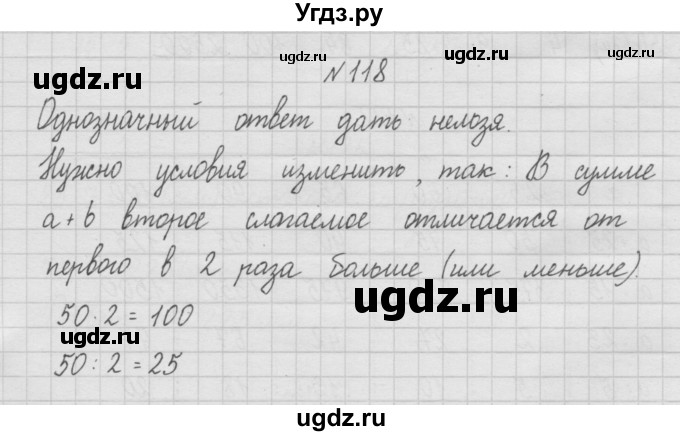 Угдз.ру
ugdz.ru
№118
ugdz.ru
Однозначный ответ дать нелозя.
Нужно условия изменить, так: В сумме
a+b второе слагаемое отличается от
первого в 2 раза больше (или меньше).
ugdz.ru
50·2=100
ugdz.ru
50:2=25
ugdz.ru